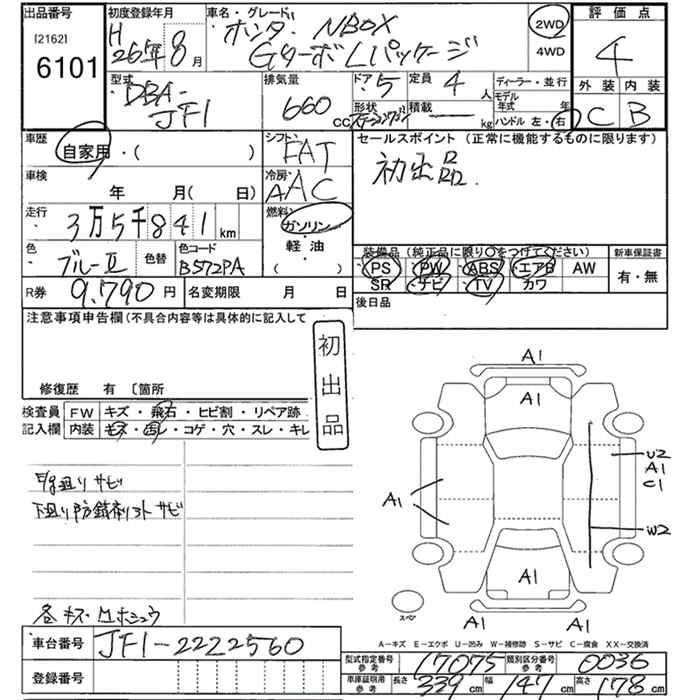 出品番号
[2162]
6101
初度登録年月
H26年8月
車名・グレード
ホンダ NBOX
Gターボ Lパッケージ
2WD
4WD
評価点
4
外装 内装
C B
型式
DBA-
JF1
排気量
660 CC
ドア 5
形状
定員 4 人
積載 ― kg
ディーラー・並行
モデル年式 年
ハンドル 左・右
車歴
自家用・( )
シフト
FAT
セールスポイント (正常に機能するものに限ります)
初出品.
車検
年 月( 日)
冷房
AAC
走行
3万5千841km
燃料
ガソリン
軽油
( )
色
ブルーⅡ
色替
色コード
B572PA
装備品 (純正品に限り○をつけてください)
PS PW ABS エアB AW
SR ナビ TV カワ
新車保証書
有・無
R券 9,790円
名変期限 月 日
後日品
注意事項申告欄(不具合内容等は具体的に記入して
初出品
修復歴 有 〔箇所
検査員記入欄
FW キズ・飛石・ヒビ割・リペア跡
内装 キズ・汚レ・コゲ・穴・スレ・キレ
下廻りサビ
下廻り防錆剤フト サビ
各キズ・凹ホシュウ
A1
A1
A1
U2
A1
C1
W2
A1
A1 A1
スペア
A-キズ E-エクボ U-凹み W-補修跡 S-サビ C-腐食 XX-交換済
車台番号 JF1-2222560
登録番号
型式指定番号 参考 17075
類別区分番号 参考 0036
車庫証明用 参考 長さ 339cm 幅 147cm 高さ 178cm